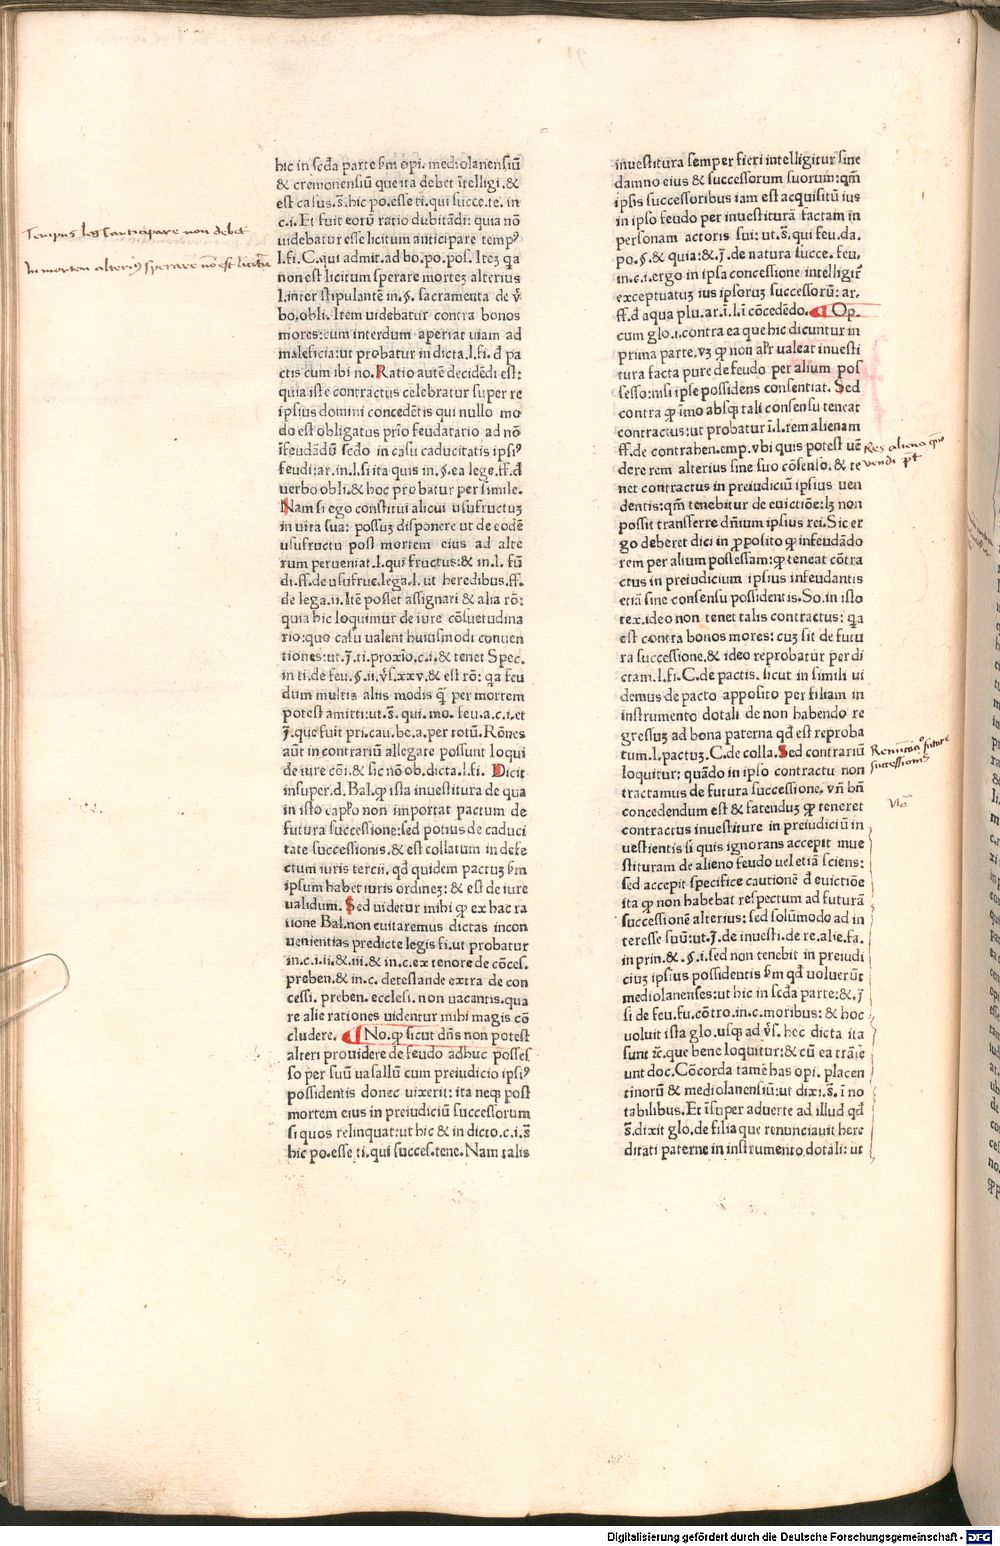 hic in scđa parte ẜm opi. mediolanensiũ
& cremonensiũ que ita debet ĩtelligi. &
est casus. s̄. hic po. esse ti. qui succe. te. in
c. i. Et fuit eorũ ratio dubitãdi: quia nõ
uidebatur esse licitum anticipare tempꝰ
l. fi. C. qui admit. ad bo. po. pos. Iteȝ q̃a
non est licitum sperare morteȝ alterius
l. inter stipulantẽ in. §. sacramenta de v̉
bo. obli. Item uidebatur contra bonos
mores: cum interdum aperiat uiam ad
maleficia: ut probatur in dicta. l. fi. đ pa
ctis cum ibi no. Ratio autẽ decidẽdi est:
quia iste contractus celebratur super re
ipsius domini concedẽtis qui nullo mo
do est obligatus prĩo feudatario ad nõ
ĩfeudãdũ scđo in casu caducitatis ipsiꝰ
feudi: ar. in. l. si ita quis in. §. ea lege. ff. đ
uerbo obli. & hoc probatur per simile.
Nam si ego constitui alicui usufructuȝ
in uita sua: possuȝ disponere ut de eodẽ
usufructu post mortem eius ad alte
rum perueniat. l. qui fructus: & in. l. fũ
di. ff. de usufruc. lega. l. ut heredibus. ff.
de lega. ii. Itẽ posset assignari & alia rõ:
quia hic loquimur de iure cõsuetudina
rio: quo casu ualent huiusmodi conuen
tiones: ut. j̄. ti. proxĩo. c. i. & tenet Spec.
in ti. de feu. §. ii. v̉s. xxv. & est rõ: q̃a feu
dum multis aliis modis q̃ per mortem
potest amitti: ut. s̄. qui. mo. feu. a. c. i. et
j̄. que fuit pri. cau. be. a. per totũ. Rõnes
aũt in contrariũ allegate possunt loqui
de iure cõi. & sic nõ ob. dicta. l. fi. Dicit
insuper. d. Bal. ꝙ ista inuestitura de qua
in isto cap̃lo non importat pactum de
futura successione: sed potius de caduci
tate successionis. & est collatum in defe
ctum iuris tercii. qđ quidem pactuȝ ẜm
ipsum habet iuris ordineȝ: & est de iure
ualidum. Sed uidetur mihi ꝙ ex hac ra
tione Bal. non euitaremus dictas incon
uenientias predicte legis fi. ut probatur
in. c. i. ii. & iii. & in. c. ex tenore de cõces.
preben. & in. c. detestande extra de con
cessi. preben. ecclesi. non uacantis. qua
re alie rationes uidentur mihi magis cõ
cludere. ¶ No. ꝙ sicut dñs non potest
alteri prouidere de feudo adhuc posses
so per suũ uasallũ cum preiudicio ipsiꝰ
possidentis donec uixerit: ita neqꝫ post
mortem eius in preiudiciũ successorum
si quos relinquat: ut hic & in dicto. c. i. s̄
hic po. esse ti. qui succes. tene. Nam talis
inuestitura semper fieri intelligitur sine
damno eius & successorum suorum: qm̃
ipsis successoribus iam est acquisitũ ius
in ipso feudo per inuesturã factam in
personam actoris sui: ut. s̄. qui feu. da.
po. §. & quia: &. j̄. de natura succe. feu.
in. c. i. ergo in ipsa concessione intelligit᷑
exceptuatuȝ ius ipsoruȝ successorũ: ar.
ff. đ aqua plu. ar. ĩ. l. ĩ cõcedẽdo. ¶ Op.
cum glo. i. contra ea que hic dicuntur in
prima parte. vȝ ꝙ non alr̃ ualeat inuesti
tura facta pure de feudo per alium pos
sesso: nisi ipse possidens consentiat. Sed
contra ꝙ ĩmo absqꝫ tali consensu teneat
contractus: ut probatur ĩ. l. rem alienam
ff. de contrahen. emp. vbi quis potest uẽ
dere rem alterius sine suo cõsenso. & te
net contractus in preiudiciũ ipsius uen
dentis: qm̃ tenebitur de euictiõe: lȝ non
possit transferre dñium ipsius rei. Sic er
go deberet dici in ꝓposito ꝙ infeudãdo
rem per alium possessam: ꝙ teneat cõtra
ctus in preiudicium ipsius infeudantis
etiã sine consensu possidentis. So. in isto
tex. ideo non tenet talis contractus: q̃a
est contra bonos mores: cuȝ sit de futu
ra successione. & ideo reprobatur per di
ctam. l. fi. C. de pactis. sicut in simili ui
demus de pacto apposito per filiam in
instrumento dotali de non habendo re
gressuȝ ad bona paterna qđ est reproba
tum. l. pactuȝ. C. de colla. Sed contrariũ
loquitur: quãdo in ipso contractu non
tractamus de futura successione. vñ bñ
concedendum est & fatenduȝ ꝙ teneret
contractus inuestiture in preiudiciũ in
uestientis si quis ignorans accepit inue
stituram de alieno feudo uel etiã sciens:
sed accepit specifice cautionẽ đ euictiõe
ita ꝙ non habebat respectum ad futurã
successionẽ alterius: sed solũmodo ad in
teresse suũ: ut. j̄. de inuesti. de re. alie. fa.
in prin. &. §. i. sed non tenebit in preiudi
ciuȝ ipsius possidentis ẜm qđ uoluerũt
mediolanenses: ut hic in scđa parte: &. j̄
si de feu. fu. cõtro. in. c. moribus: & hoc
uoluit ista glo. usqꝫ ad v̉s. hec dicta ita
sunt &c. que bene loquitur: & cũ ea trãse
unt doc. Cõcorda tamẽ has opi. placen
tinorũ & mediolanensiũ: ut dixi. s̄. ĩ no
tabilibus. Et ĩsuper aduerte ad illud qđ
s̄. dixit glo. de filia que renunciauit here
ditati paterne in instrumento dotali: ut
Tempus legis anticipare non debet
In mortem alteriꝰ sperare nõ est licitũ
Res aliena quo
vendi põt
Renũciatio future
successionis
Digitalisierung gefördert durch die Deutsche Forschungsgemeinschaft - DFG